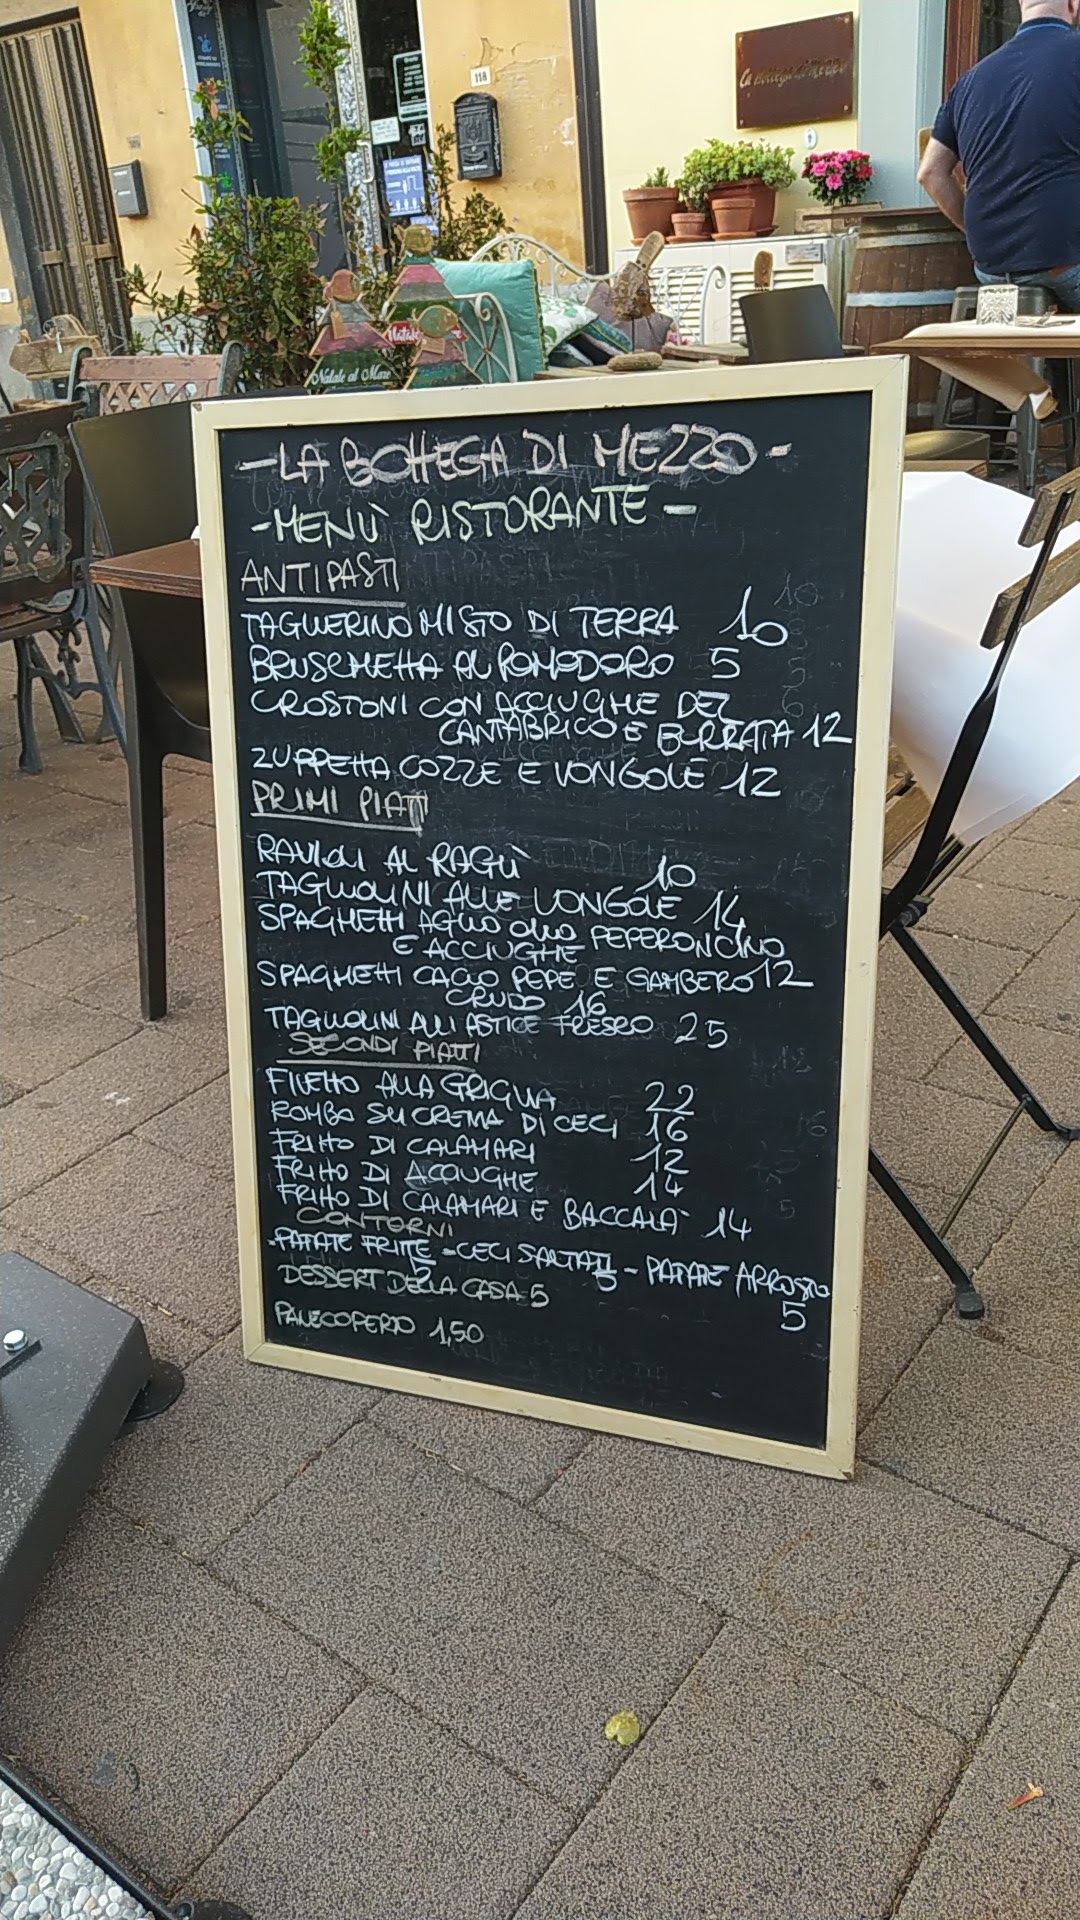 118
La Bottega di Mezzo
Natale al Mare
-LA BOTTEGA DI MEZZO-
-MENÙ RISTORANTE-
ANTIPASTI
TAGLIERINO MISTO DI TERRA 10
BRUSCHETTA AL POMODORO 5
CROSTONI CON ACCIUGHE DEL
CANTABRICO E BURRATA 12
ZUPPETTA COZZE E VONGOLE 12
PRIMI PIATTI
RAVIOLI AL RAGÙ 10
TAGLIOLINI ALLE VONGOLE 14
SPAGHETTI AGLIO OLIO PEPERONCINO
E ACCIUGHE 12
SPAGHETTI CACIO PEPE E GAMBERO
CRUDO 16
TAGLIOLINI ALL'ASTICE FRESCO 25
SECONDI PIATTI
FILETTO ALLA GRIGLIA 22
ROMBO SU CREMA DI CECI 16
FRITTO DI CALAMARI 12
FRITTO DI ACCIUGHE 14
FRITTO DI CALAMARI E BACCALA' 14
CONTORNI
-PATATE FRITTE -CECI SALTATI - PATATE ARROSTO
5 5
DESSERT DELLA CASA 5
PANECOPERTO 1,50